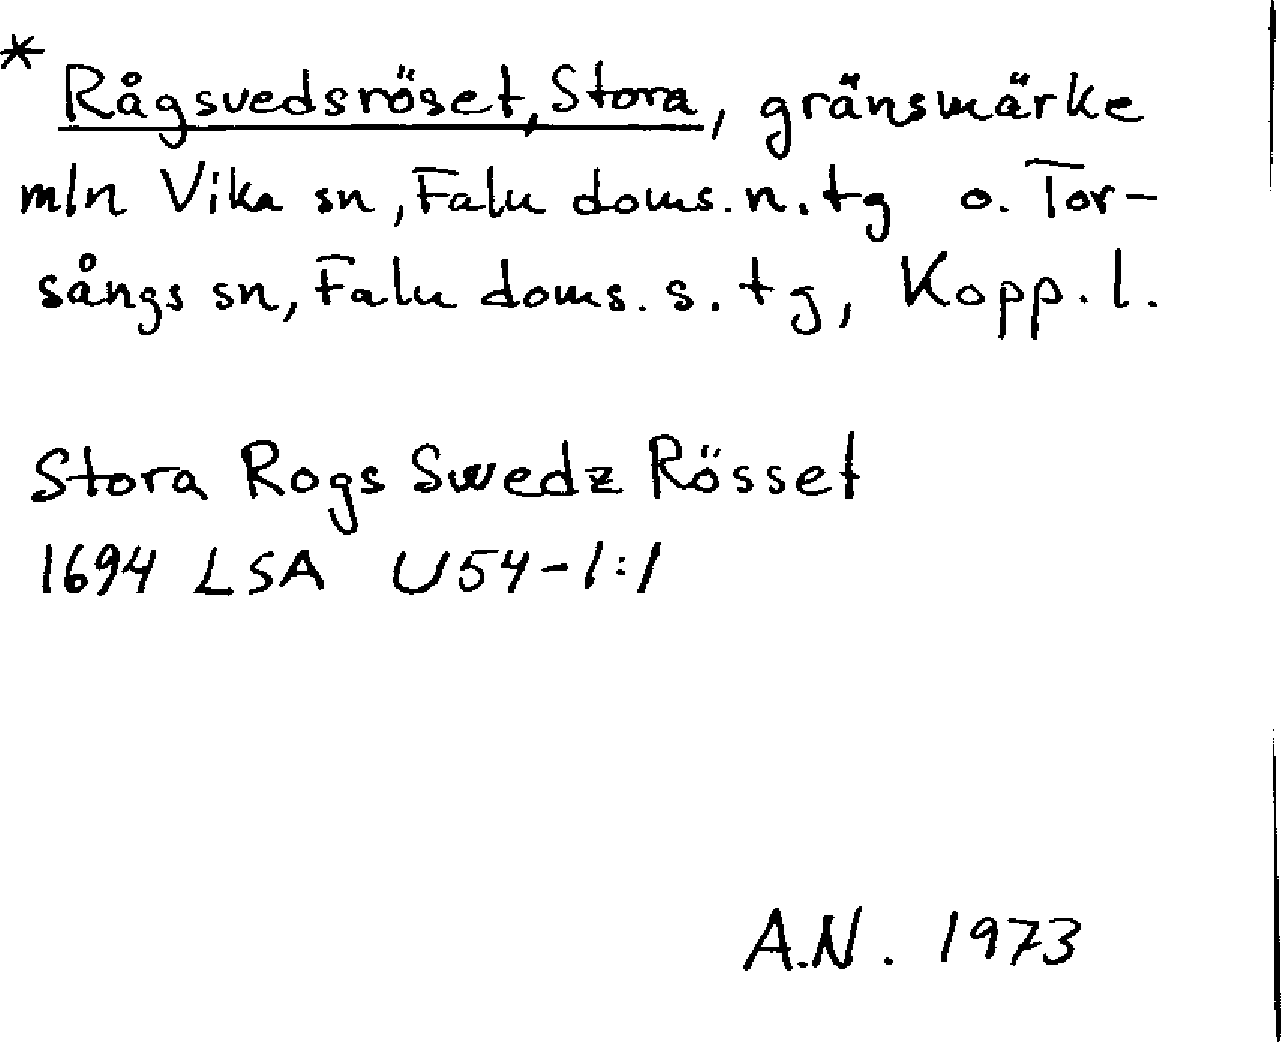 * Rågsvedsröset, Stora, gränsmärke
mln Vika sn, Falu doms. n. tg o. Tor-
sångs sn, Falu doms. s. tg, Kopp. l.
Stora Rogs Swedz Rösset
1694 LSA U54-1:1
A.N. 1973